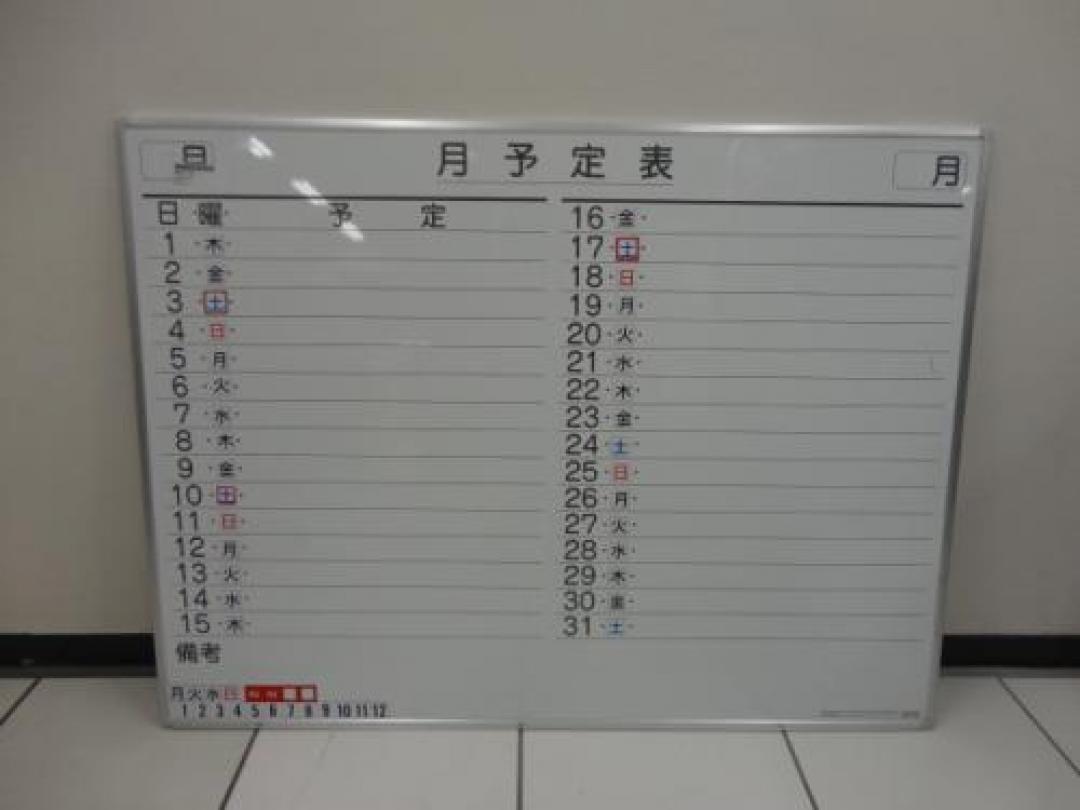 月予定表
月
日 曜 予定
1 木
2 金
3 土
4 日
5 月
6 火
7 水
8 木
9 金
10 土
11 日
12 月
13 火
14 水
15 木
16 金
17 土
18 日
19 月
20 火
21 水
22 木
23 金
24 土
25 日
26 月
27 火
28 水
29 木
30 金
31 土
備考
月 火 水 日
1 2 3 4 5 6 7 8 9 10 11 12